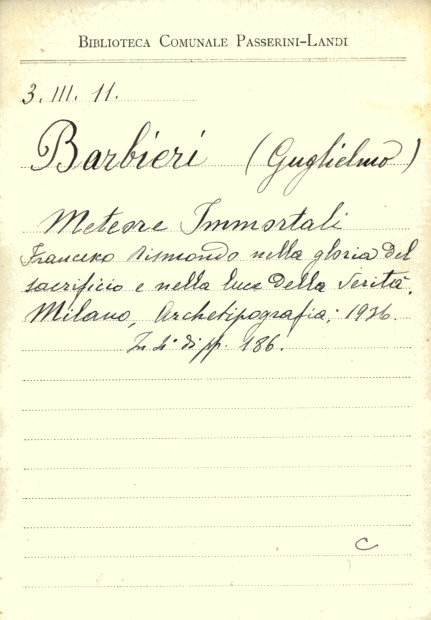 BIBLIOTECA COMUNALE PASSERINI-LANDI
3. III. 11.
Barbieri (Guglielmo)
Meteore Immortali
Francesco Rismondo nella gloria del
sacrificio e nella luce della Verità.
Milano, Archetipografia, 1936.
In 4° di pp. 186.
C